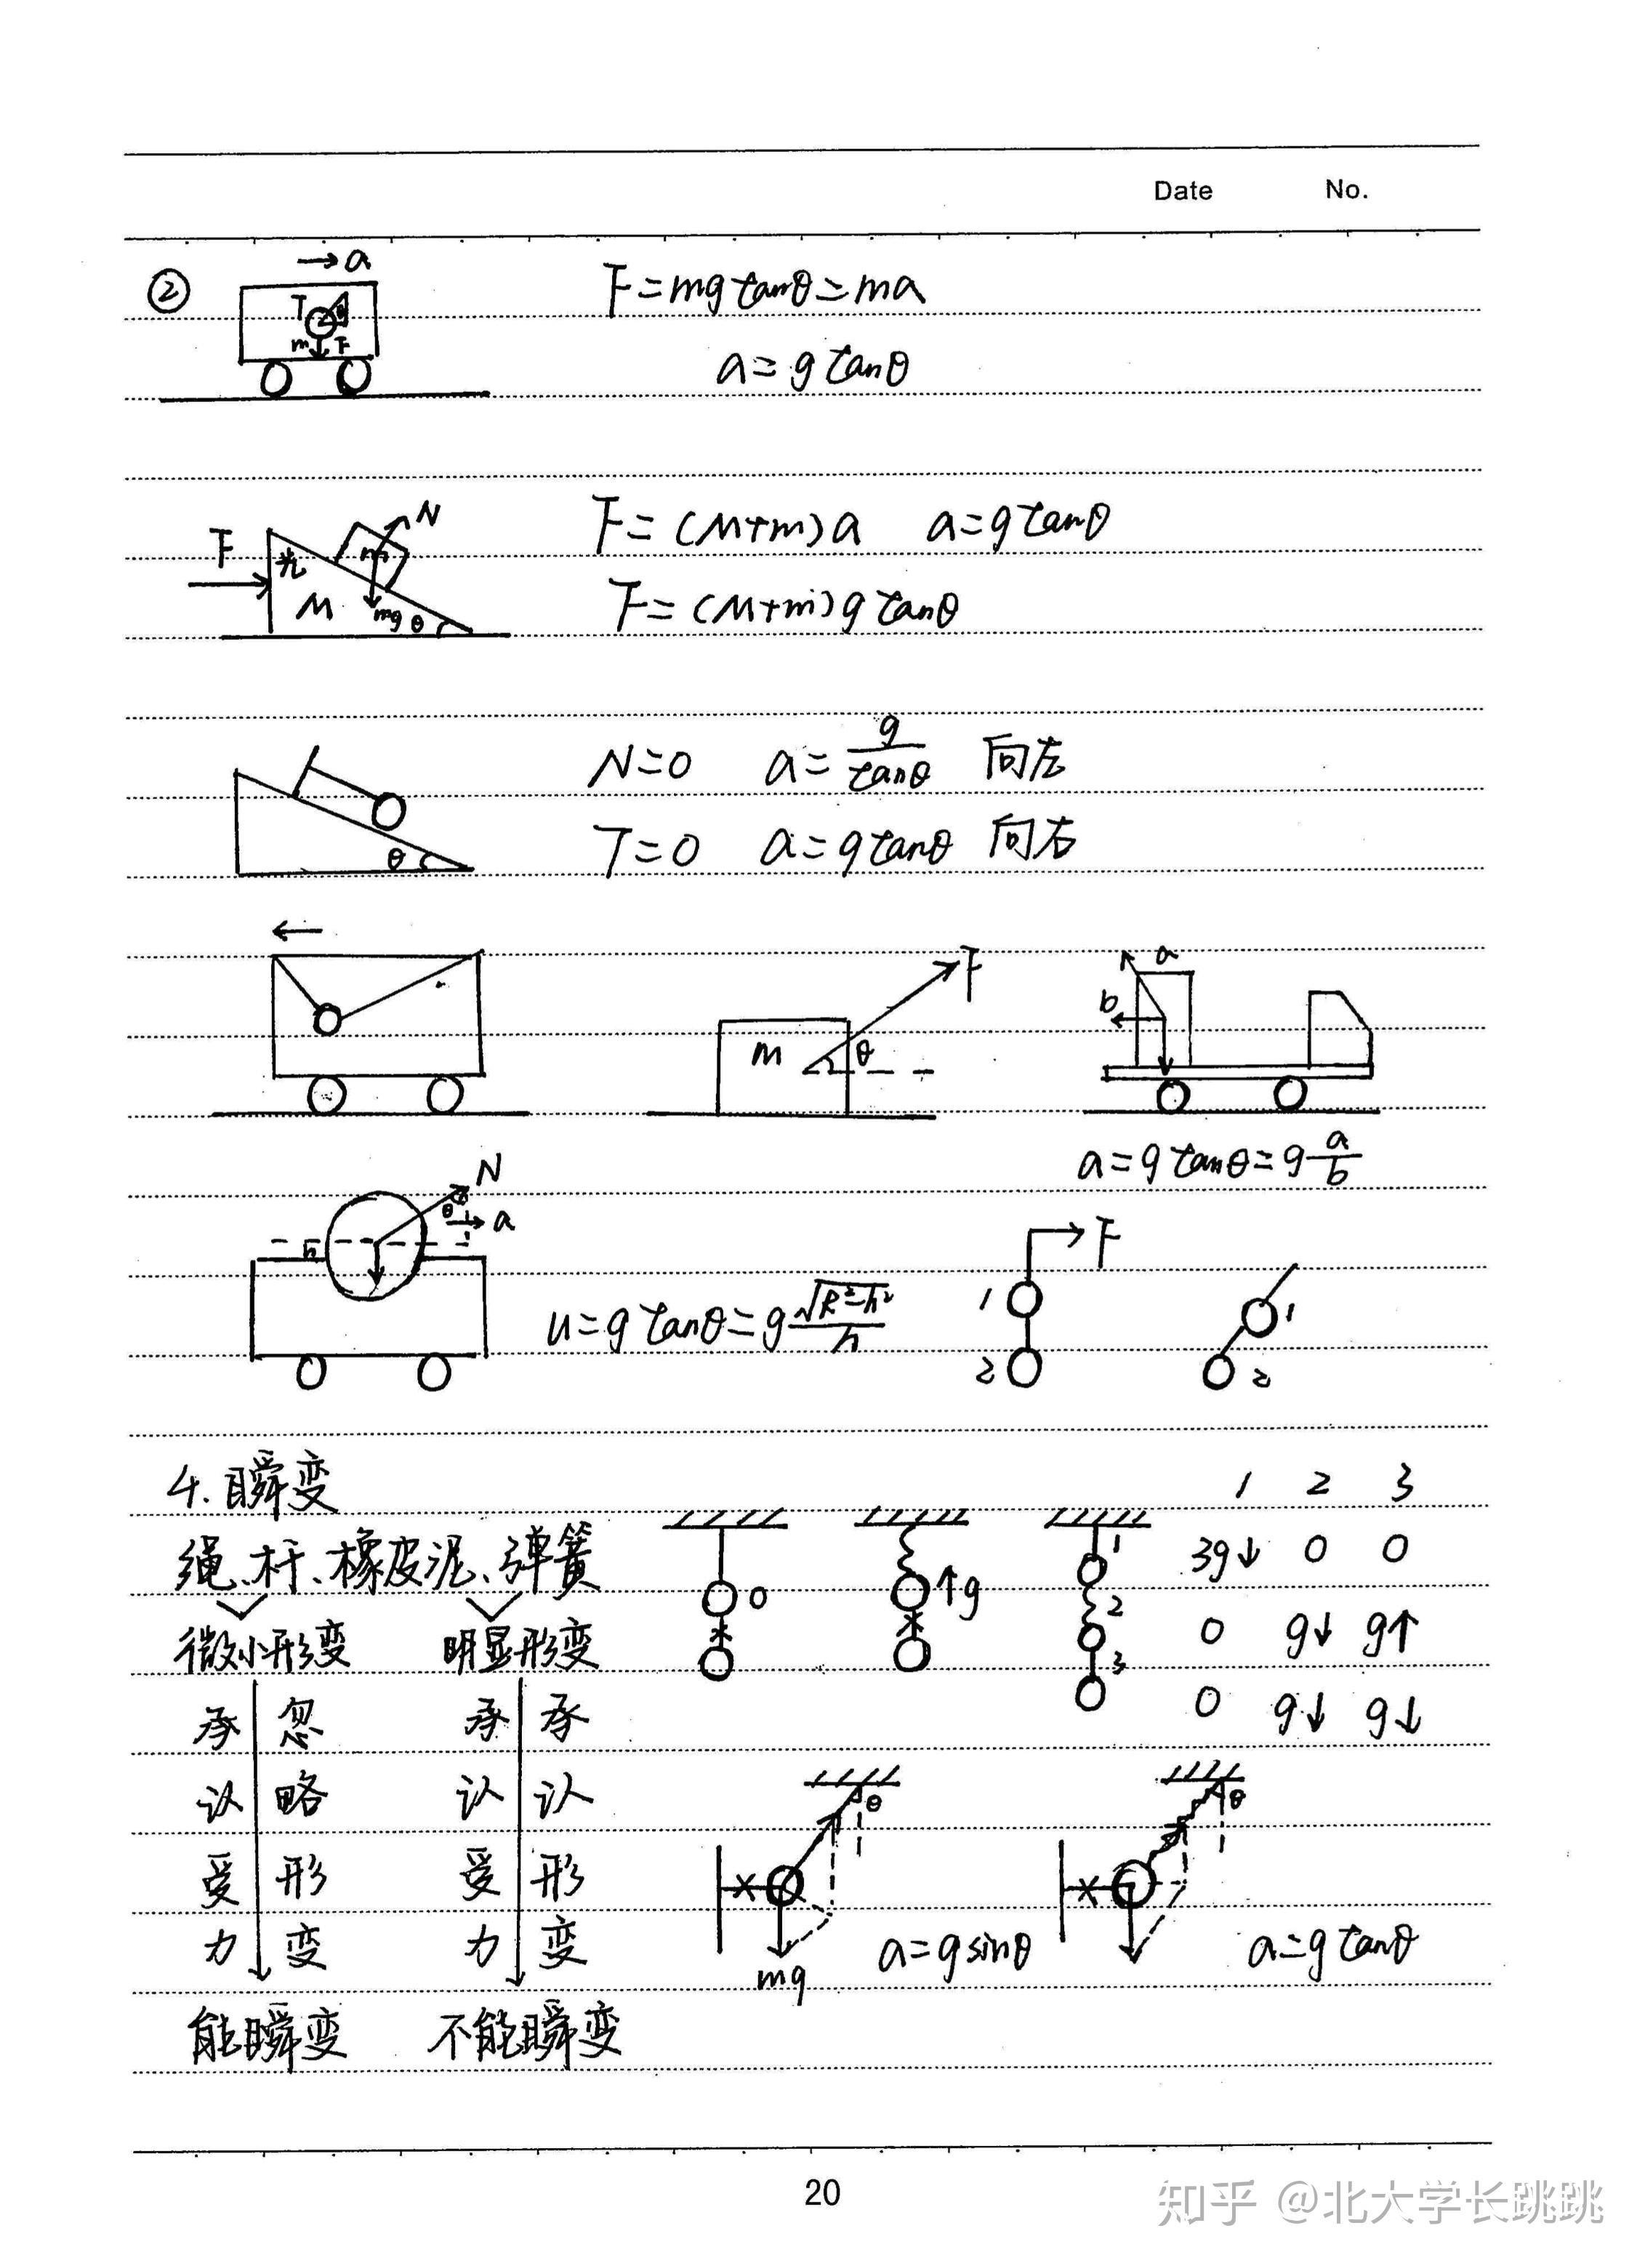 Date No.
② → a
T θ
m F
F=mg tanθ=ma
a=g tanθ
F 光 m N
M mg θ
F=(M+m)a a=g tanθ
F=(M+m)g tanθ
θ
N=0 a=g/tanθ 向左
T=0 a=g tanθ 向右
m θ F
a
b
a=g tanθ=g a/b
N
θ a
h
u=g tanθ=g √R²-h²/h
F
1 1
2 2
4.瞬变
绳、杆、橡皮泥、弹簧
微小形变 明显形变
承认受力 忽略形变
承认受力 承认形变
能瞬变 不能瞬变
0 ↑g
1
2
3
1 2 3
3g↓ 0 0
0 g↓ g↑
0 g↓ g↓
θ θ
mg a=g sinθ a=g tanθ
20
知乎 @北大学长跳跳